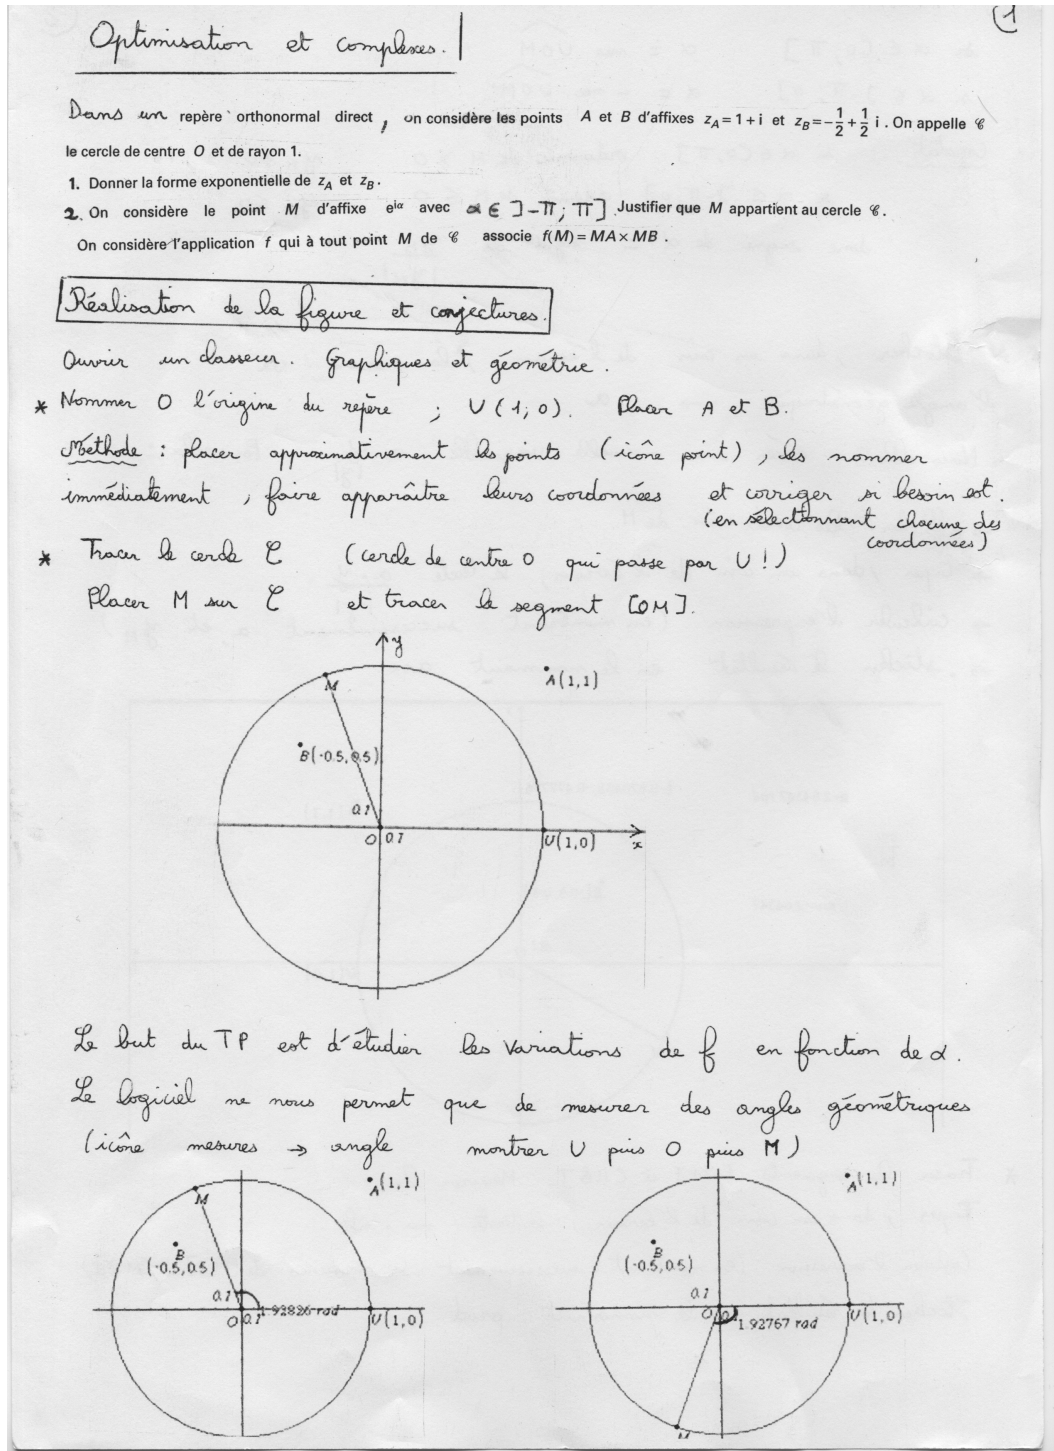 1
Optimisation et complexes.
Dans un repère orthonormal direct, on considère les points A et B d'affixes z_A = 1 + i et z_B = -1/2 + 1/2 i. On appelle 𝒞
le cercle de centre O et de rayon 1.
1. Donner la forme exponentielle de z_A et z_B.
2. On considère le point M d'affixe e^{iα} avec α ∈ ]-π; π]. Justifier que M appartient au cercle 𝒞.
On considère l'application f qui à tout point M de 𝒞 associe f(M) = MA × MB.
Réalisation de la figure et conjectures.
Ouvrir un classeur. Graphiques et géométrie.
* Nommer O l'origine du repère ; U(1;0). Placer A et B.
Méthode : placer approximativement les points (icône point), les nommer
immédiatement, faire apparaître leurs coordonnées et corriger si besoin est.
(en sélectionnant chacune des
coordonnées)
* Tracer le cercle 𝒞 (cercle de centre O qui passe par U!)
Placer M sur 𝒞 et tracer le segment [OM].
y
M
A(1,1)
B(-0.5,0.5)
0.1
O 0.1
U(1,0)
x
Le but du TP est d'étudier les variations de f en fonction de α.
Le logiciel ne nous permet que de mesurer des angles géométriques
(icône mesures → angle montrer U puis O puis M)
M
A(1,1)
B
(-0.5,0.5)
0.1
1.92826 rad
O 0.1
U(1,0)
A(1,1)
B
(-0.5,0.5)
0.1
O 0.1
1.92767 rad
U(1,0)
M